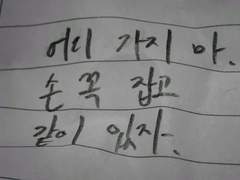 어디 가지 마.
손 꼭 잡고
같이 있자.